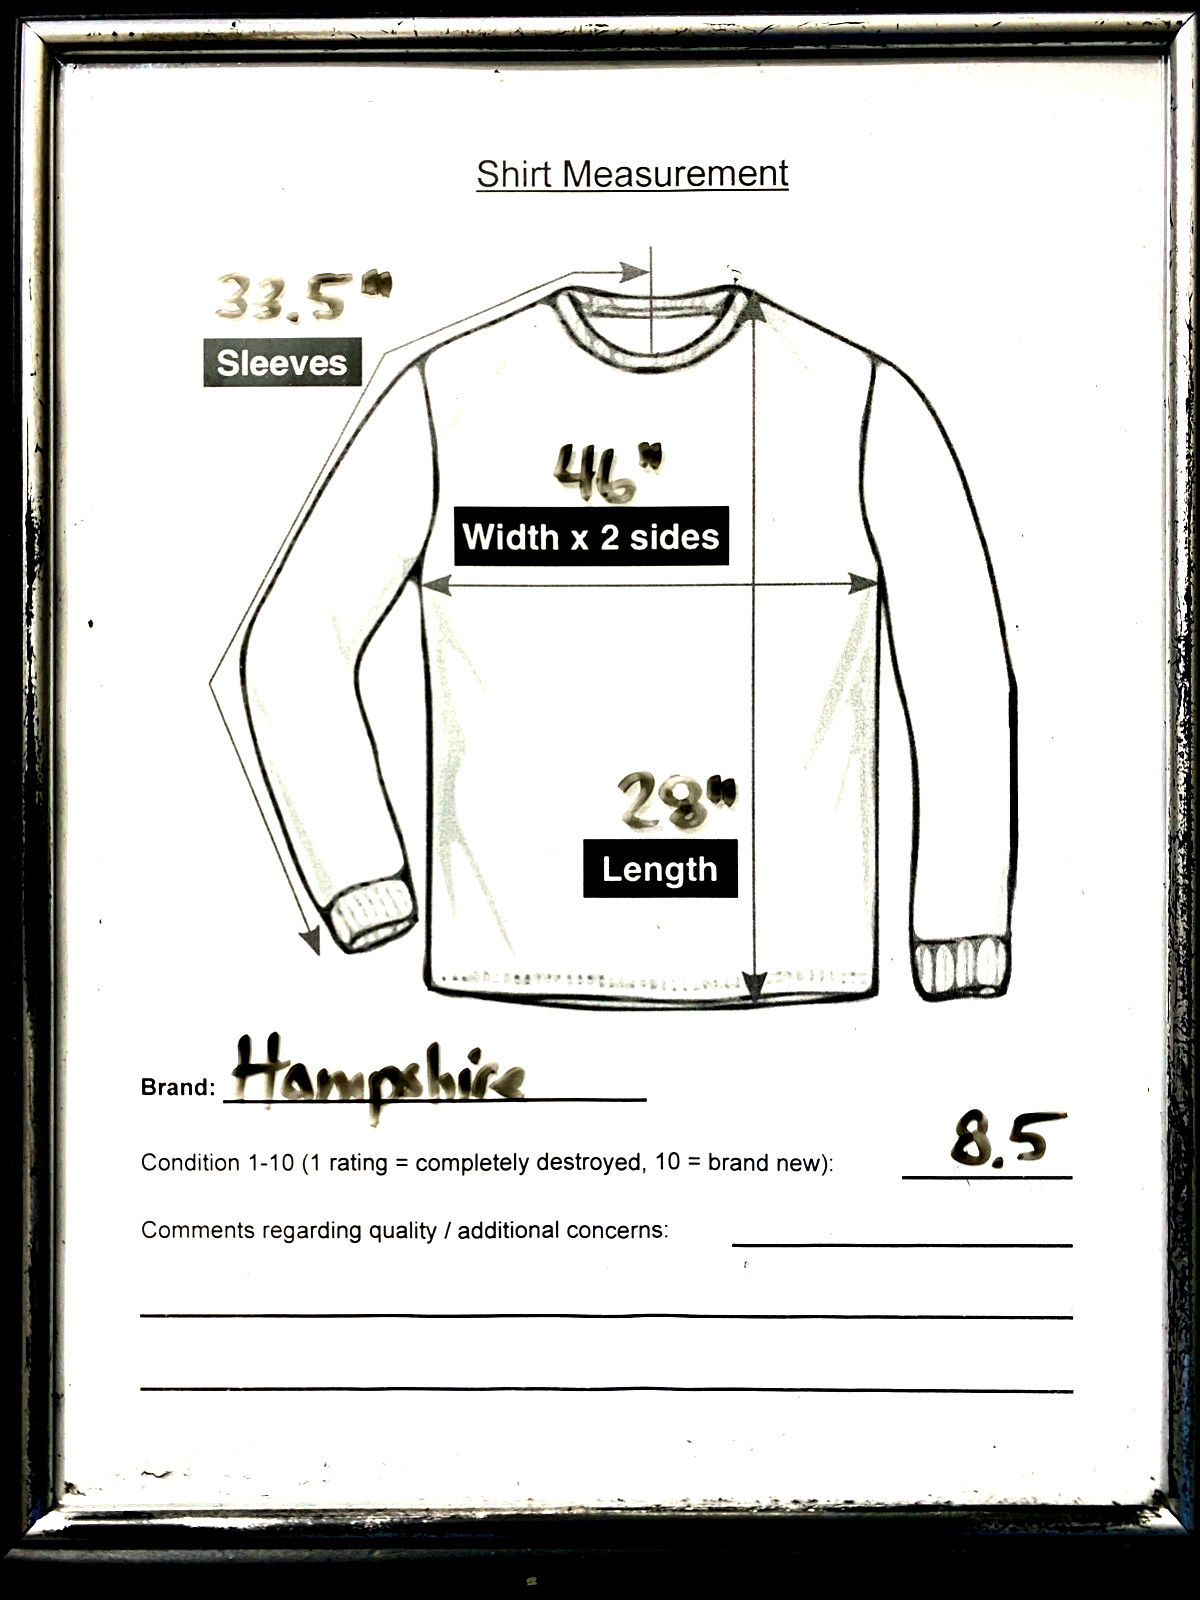 Shirt Measurement
33.5"
Sleeves
46"
Width x 2 sides
28"
Length
Brand: Hampshire
Condition 1-10 (1 rating = completely destroyed, 10 = brand new): 8.5
Comments regarding quality / additional concerns: